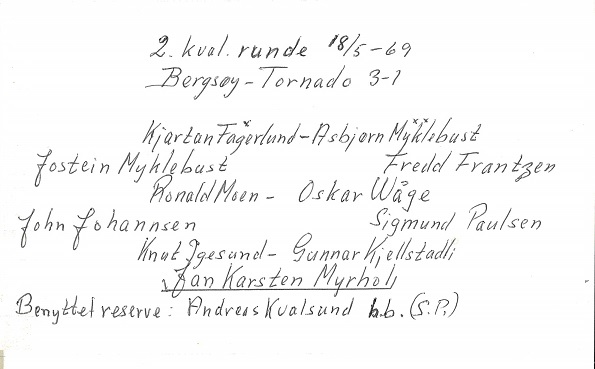 2. kval. runde 18/5-69
Bergsøy - Tornado 3-1
Kjartan Fagerlund - Asbjørn Myklebust
Jostein Myklebust Fredd Frantzen
Ronald Moen - Oskar Wåge
John Johannsen Sigmund Paulsen
Knut Igesund - Gunnar Kjellstadli
Jan Karsten Myrhol
Benyttet reserve: Andreas Kvalsund h.b. (S.P.)